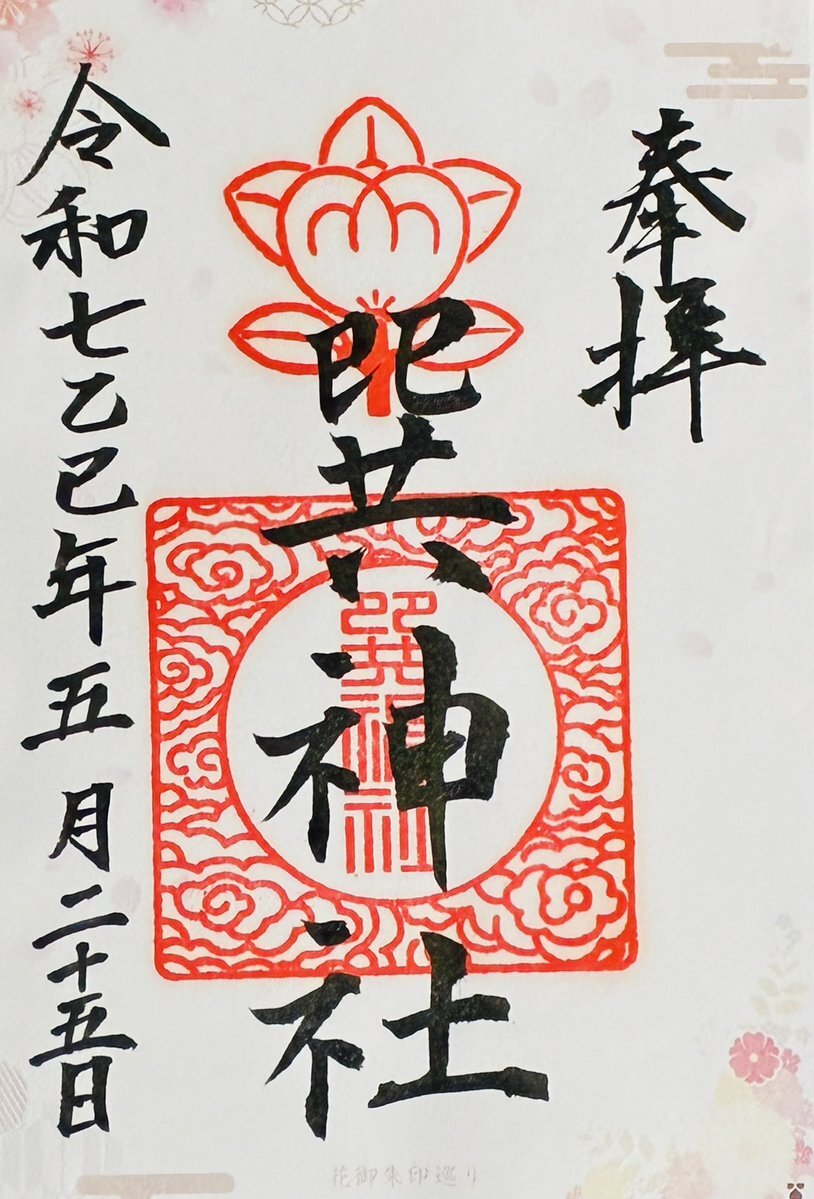 奉拝
巽神社
巽神社
令和七乙巳年五月二十五日
花御朱印巡り